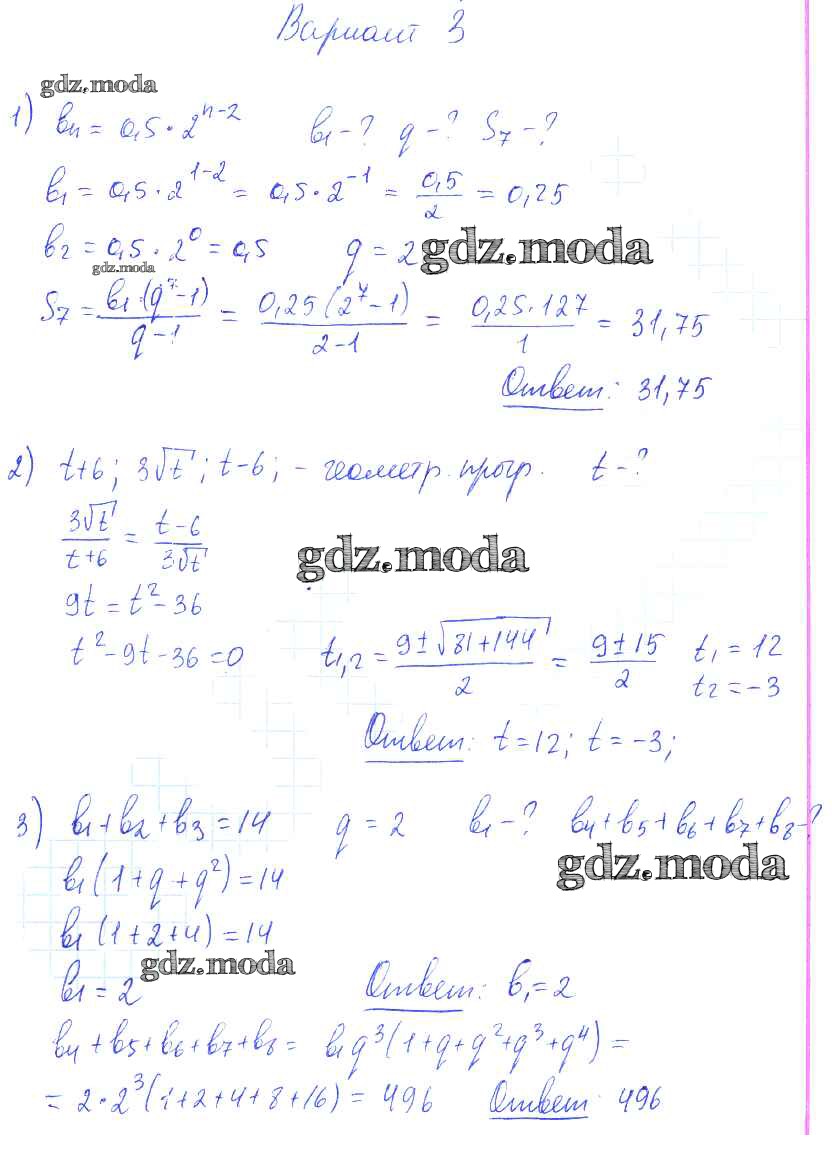 Вариант 3
gdz.moda
1) bn = 0,5·2^(n-2) b1 - ? q - ? S7 - ?
b1 = 0,5·2^(1-2) = 0,5·2^(-1) = 0,5/2 = 0,25
b2 = 0,5·2^0 = 0,5 q = 2 gdz.moda
gdz.moda
S7 = b1·(q^7-1)/(q-1) = 0,25(2^7-1)/(2-1) = 0,25·127/1 = 31,75
Ответ: 31,75
2) t+6; 3√t; t-6; - геометр. прогр. t - ?
3√t/(t+6) = (t-6)/(3√t)
gdz.moda
9t = t²-36
t²-9t-36=0 t1,2 = (9±√(81+144))/2 = (9±15)/2 t1 = 12
t2 = -3
Ответ: t=12; t=-3;
3) b1+b2+b3=14 q = 2 b1 - ? b4+b5+b6+b7+b8-?
gdz.moda
b1(1+q+q²)=14
b1(1+2+4)=14
gdz.moda
b1=2 Ответ: b1=2
b4+b5+b6+b7+b8 = b1q³(1+q+q²+q³+q⁴) =
= 2·2³(1+2+4+8+16) = 496 Ответ: 496